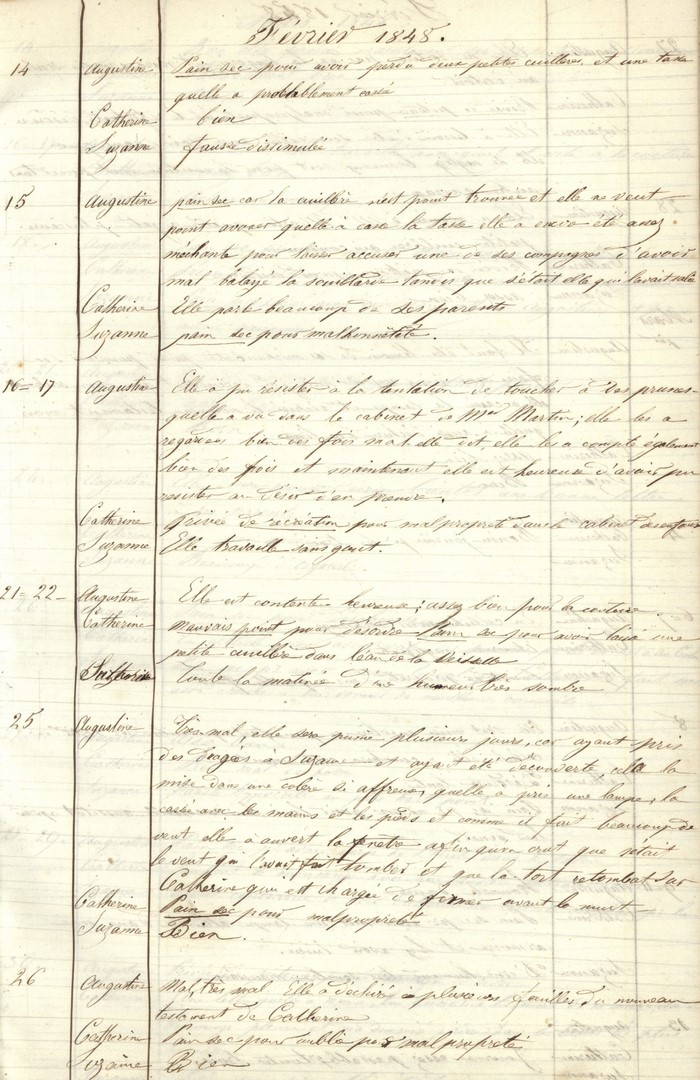 Février 1848.
14 Augustine Pain sec pour avoir perdu deux petites cuillères et une tasse
quelle a problablement cassé
Catherine bien
Suzanne fausse dissimulée
15 Augustine pain sec car la cuillère n'est point trouvée et elle ne veut
point avouer quelle à cassé la tasse elle a encore été assez
méchante pour laisser accuser une de ses compagnes d'avoir
mal balayé la souillarde tandis que s'était elle qui l'avait salie
Catherine Elle parle beaucoup de ses parents
Suzanne pain sec pour malhonnêteté.
16=17 Augustine Elle à pu résister à la tentation de toucher à des prunes
quelle a vu dans le cabinet de Mme Martin; elle les a
regardées bien des fois mat elle dit, elle les a compté également
bien des fois et maintenant elle est heureuse d'avoir pu
resister au désir d'en prendre.
Catherine Privée de récréation pour malpropreté dans le cabinet
Suzanne Elle travaille sans gout.
21=22- Augustine Elle est contente heureuse; assez bien pour la couture
Catherine Mauvais point pour désordre Pain sec pour avoir laissé une
petite cuillère dans l'eau de la vaisselle
toute la matinée d'une humeur très sombre
25 Augustine très mal, elle sera punie plusieurs jours, car ayant pris
des dragés à Suzanne et ayant été découverte, cela la
mise dans une colère si affreuse, quelle a pris une lampe, la
cassée avec les mains et les pieds et comme il fait beaucoup de
vent elle à ouvert la fenetre afin qu'on crut que s'était
le vent qui l'avait fait tomber et que la tort retombat sur
Catherine qui est chargée de fermer avant la nuit
Catherine Pain sec pour malpropreté
Suzanne Bien.
26 Augustine Mal, très mal Elle à déchiré plusieurs feuilles du nouveau
testament de Catherine
Catherine Pain sec pour oublie malpropreté
Suzanne Bien